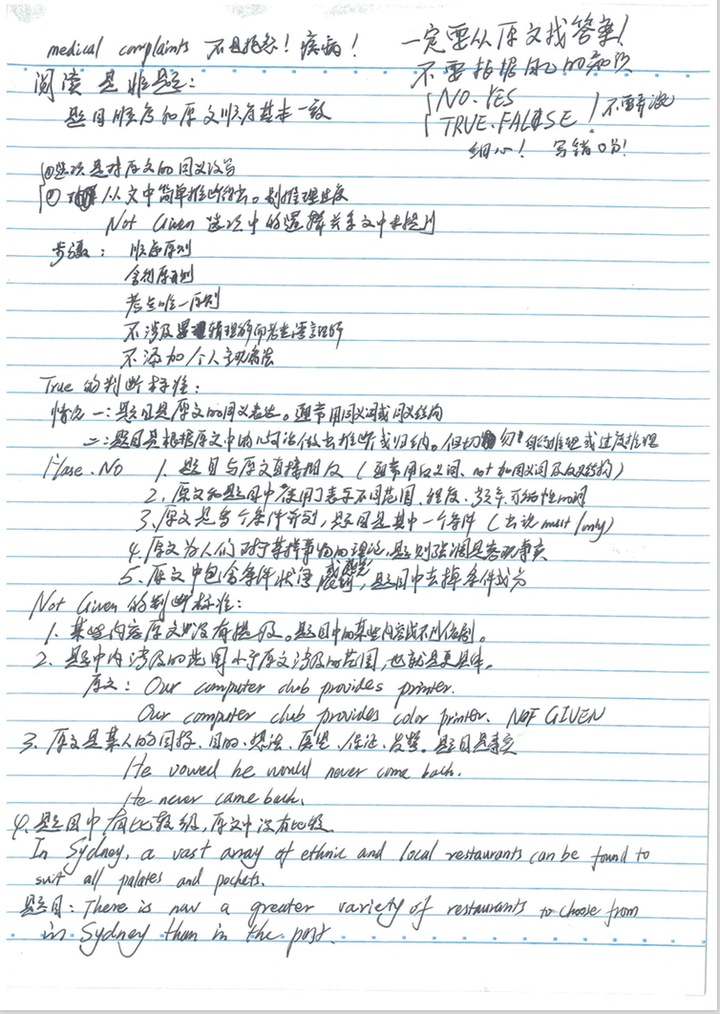 medical complaints 不是抱怨！疾病！
一定要从原文找答案！
不要根据自己的知识
阅读是非题：
NO. YES
TRUE. FALSE ！不要弄混
题目顺序和原文顺序基本一致
细心！ 写错0分！
①选项是对原文的同义改写
② 从文中简单推断得出。别推理过度
Not Given 选项中的逻辑关系文中未提到
步骤： 顺序原则
原则
考点唯一原则
不涉及 理解而考查语言理解
不添加个人主观看法
True 的判断标准：
情况一：题目是原文的同义表达。通常用同义词或同义结构
二：题目是根据原文中的几句话做出推断或归纳。但切勿自行推理或过度推理
False. NO 1. 题目与原文直接相反（通常用反义词、not加同义词及反义结构）
2. 原文和题目中使用了表示不同范围、程度、频率、可能性的词
3. 原文是多个条件并列，题目是其中一个条件（去说 must / only）
4. 原文为人们对于某样事物的理论，题则强调是客观事实
5. 原文中包含条件状语 ，题目中去掉条件成分
Not Given 的判断标准：
1. 某些内容原文中没有提及。题目中的某些内容找不到依据。
2. 题中内涉及的范围小于原文涉及的范围，也就是更具体。
原文：Our computer club provides printer.
Our computer club provides color printer. NOT GIVEN
3. 原文是某人的目标、目的、想法、愿望、保证、发誓。题目是事实
He vowed he would never come back.
He never came back.
4. 题目中有比较级，原文中没有比较
In Sydney, a vast array of ethnic and local restaurants can be found to
suit all palates and pockets.
题目：There is now a greater variety of restaurants to choose from
in Sydney than in the past.